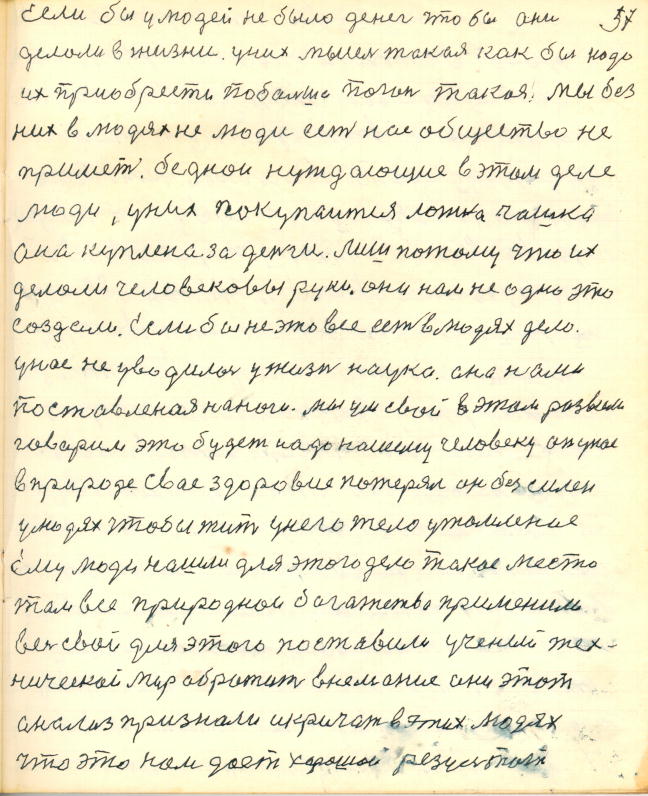 Если бы у людей не было денег что бы они 57
делали в жизни. у них мысля такая как бы надо
их приобрести побальше погоп такая. мы без
них в людях не люди ест нас общество не
примет. бедной нуждающие в этом деле
люди, у них покупаится ложка чашка
ана куплена за денги. Лиш потому что их
делали человековы руки. они нам не одно это
создали. Если бы не это все ест в людях дело.
унас не уводилас у жизн наука. ана нами
поставленая на ноги. мы ум свой в этом развели
говарим это будет надо нашему человеку он унас
в природе свае здоровие потерял он без силен
у людях чтобы жит у него тело утомленае
Ему люди нашли для этого дело такое место
там все природнои багатства применили
вес свой для этого поставили ученый тех-
нической мир обратит внемание они этот
анализ признали и кричат в этих людях
что это нам дает харошой результат